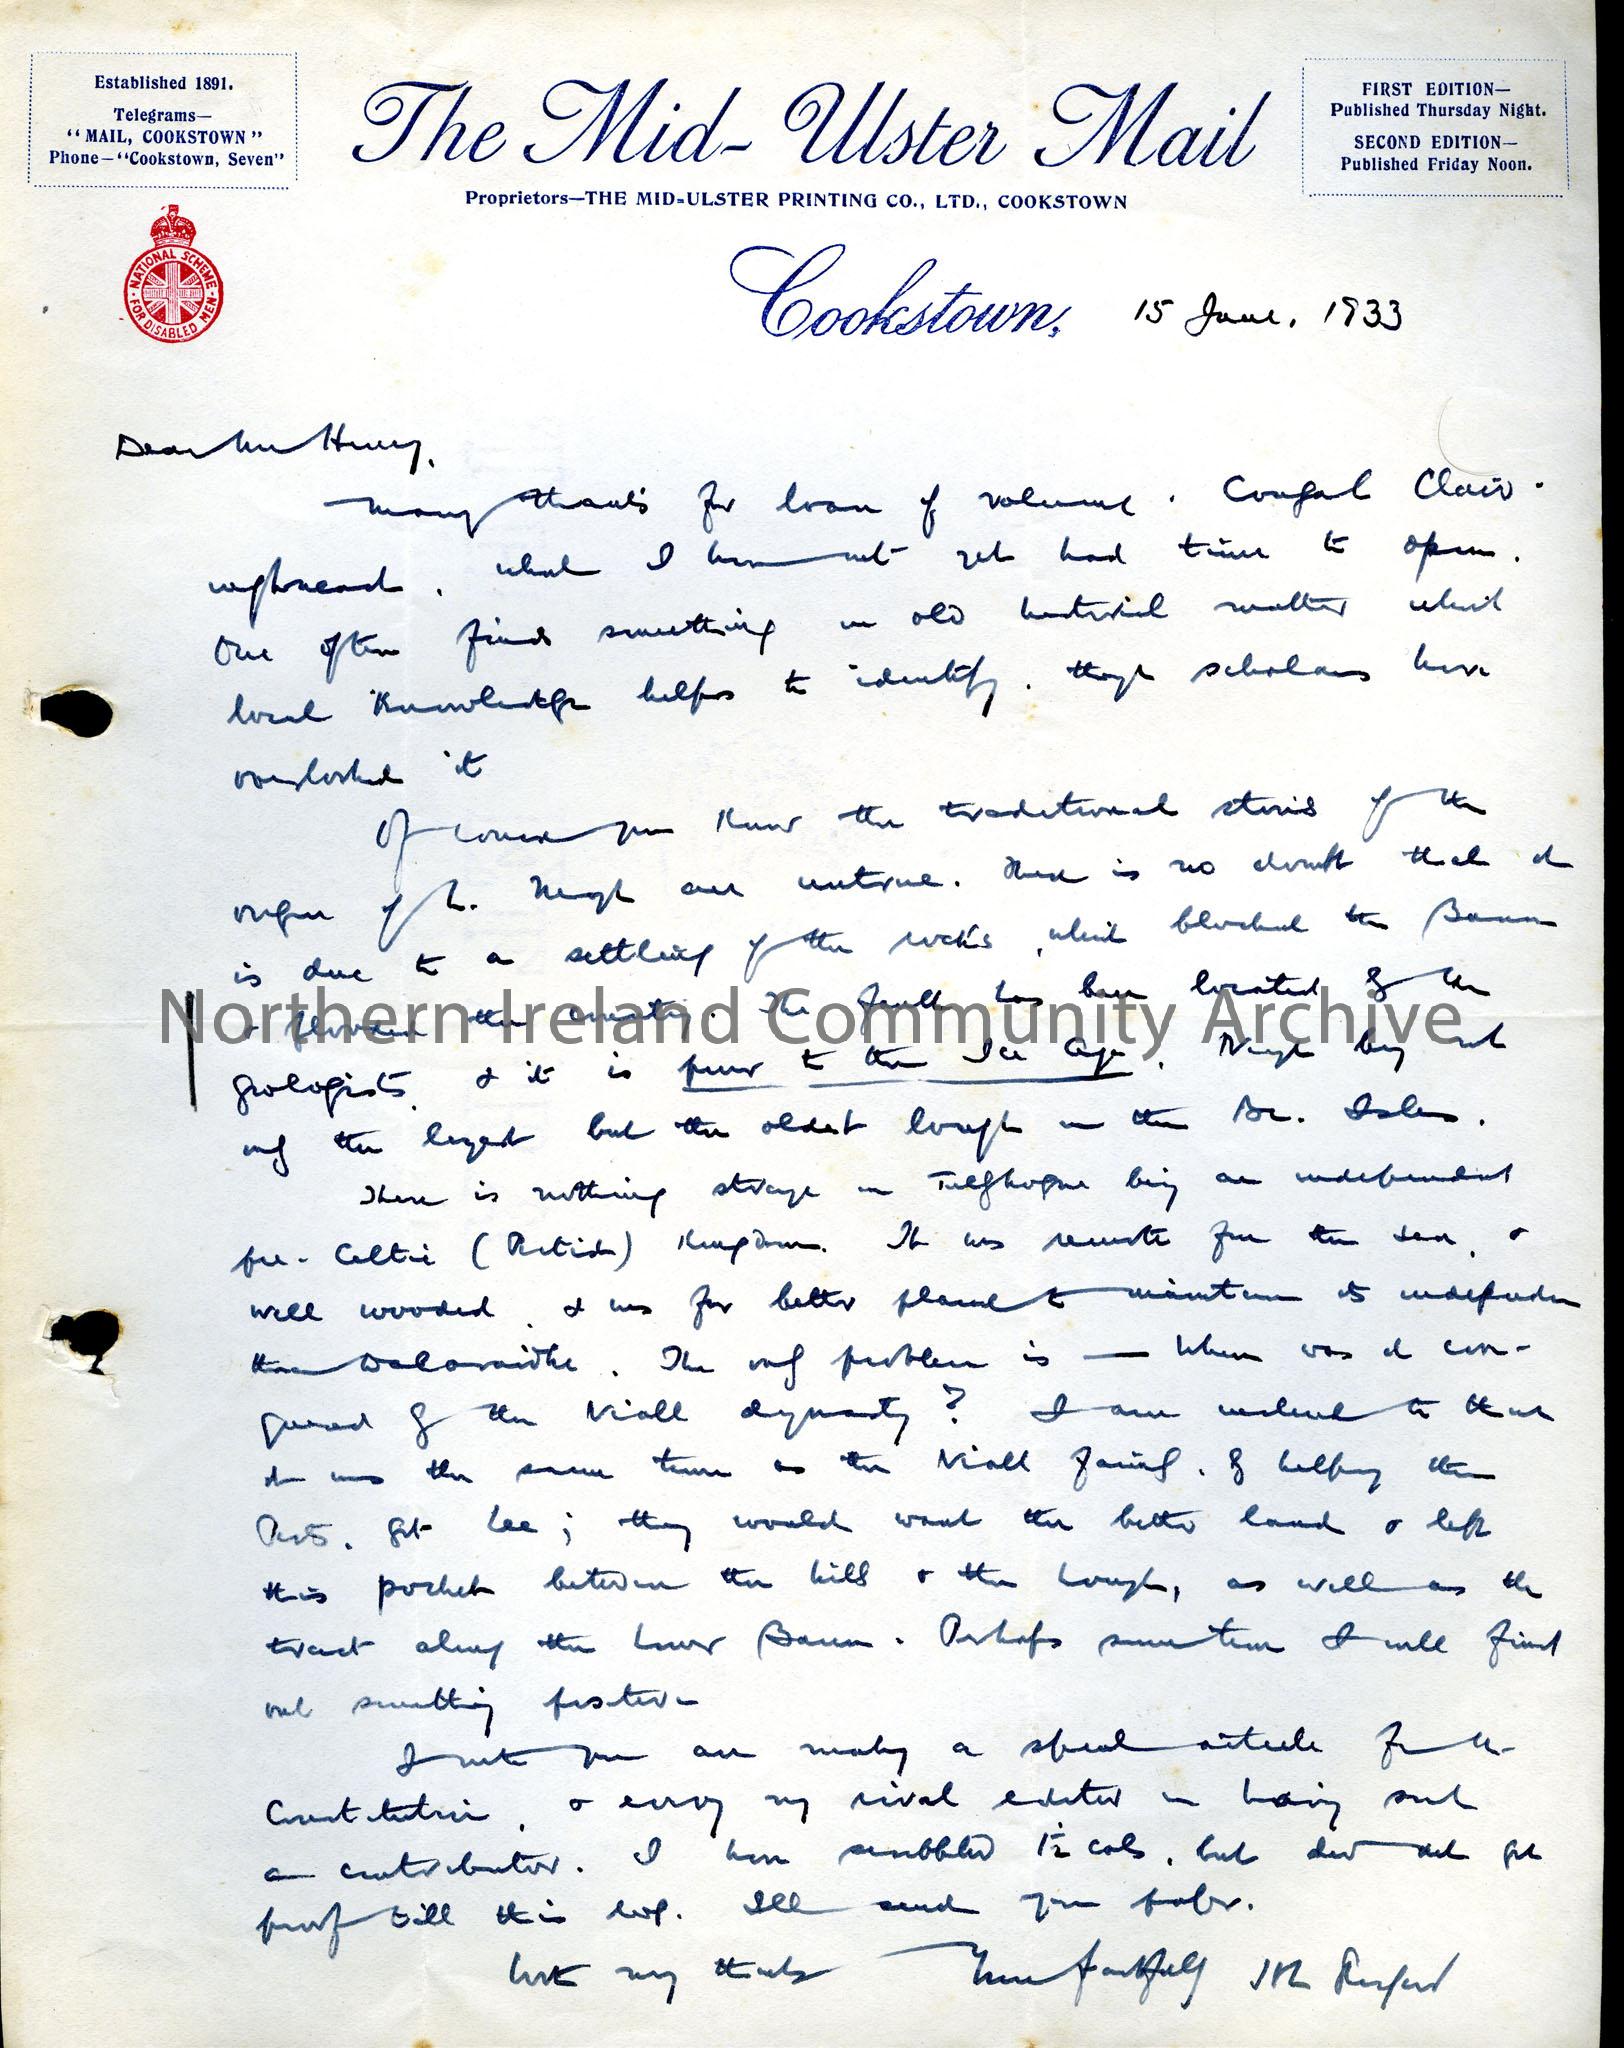 Established 1891.
Telegrams—
"MAIL, COOKSTOWN"
Phone—"Cookstown, Seven"
The Mid-Ulster Mail
Proprietors—THE MID-ULSTER PRINTING CO., LTD., COOKSTOWN
FIRST EDITION—
Published Thursday Night.
SECOND EDITION—
Published Friday Noon.
NATIONAL SCHEME
FOR DISABLED MEN
Cookstown, 15 June, 1933
Dear Mr Henry,
Many thanks for loan of volume. Congal Clair-
inghneach, which I have not yet had time to open.
One often finds something in old historical matter which
local knowledge helps to identify, though scholars have
overlooked it
Of course you know the traditional stories of the
origin of L. Neagh are untrue. There is no doubt that it
is due to a settling of the rocks, which blocked the Bann
& flooded the country. The fault has been located by the
geologists, & it is prior to the Ice Age. Neagh being not
only the largest but the oldest lough in the Br. Isles.
There is nothing strange in Tullyhogue being an independent
pre-Celtic (Pictish) Kingdom. It was remote from the sea, &
well wooded, & was far better placed to maintain its independence
than Dalaraidhe. The only problem is — When was it con-
quered by the Niall dynasty? I am inclined to think
it was the same time as the Niall family, by helping the
Picts, got Lee; they would want the better land & left
this pocket between the hills & the Lough, as well as the
tract along the lower Bann. Perhaps sometime I will find
out something positive
I note you are making a special article for the
Constitution, & envy my rival editor in having such
a contributor. I have scribbled 1½ cols, but did not get
proof till this evg. I'll send you paper.
With many thanks Yours faithfully
Northern Ireland Community Archive